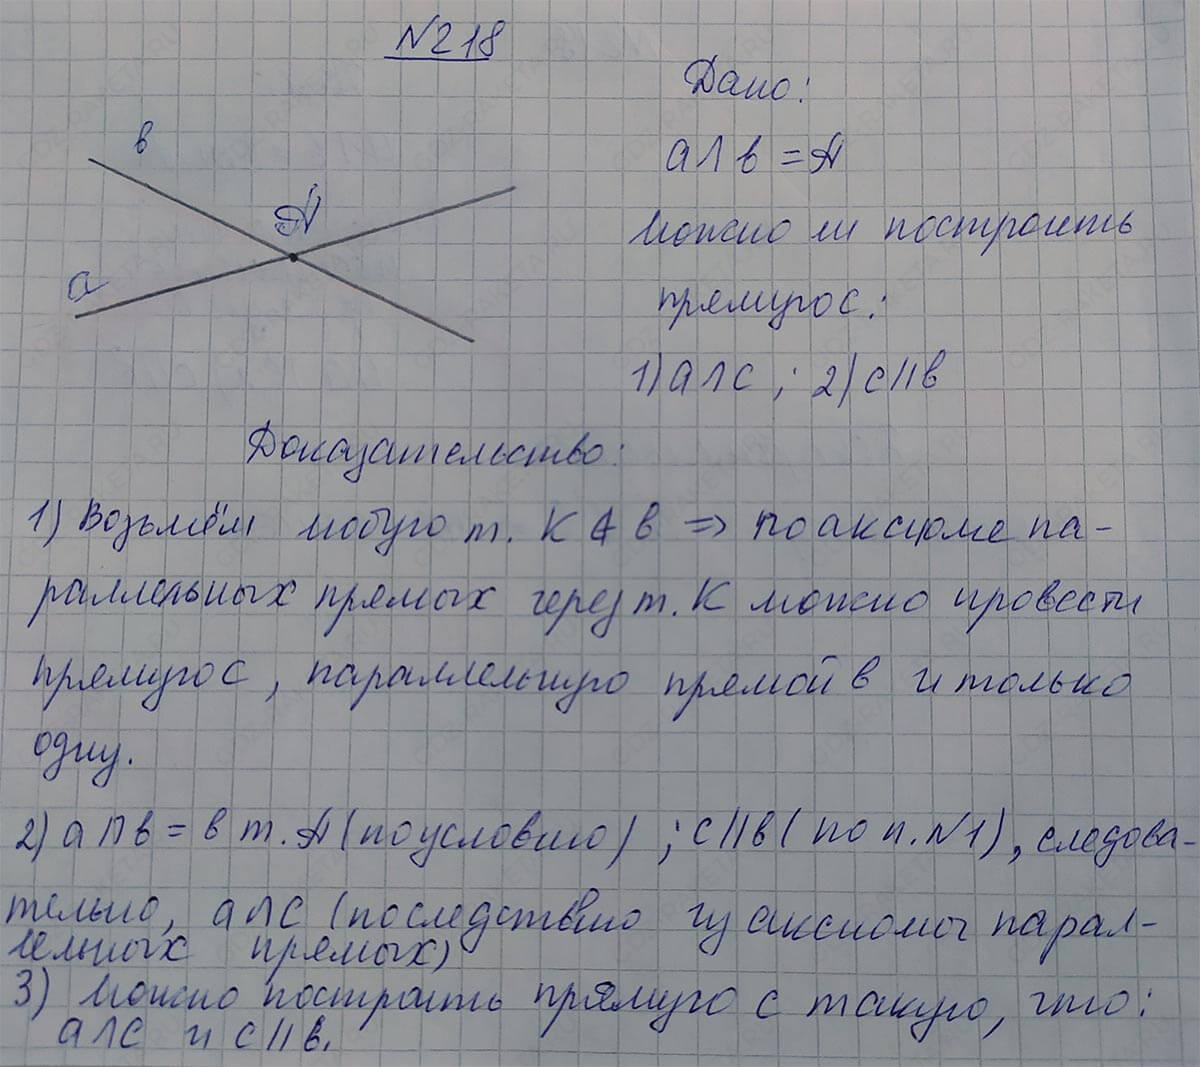 №218
Дано:
в
a∩в = А
А
можно ли построить
а
прямую с:
1) а∩с ; 2) с||в
Доказательство:
1) Возьмём любую т. К ∉ в => по аксиоме па-
раллельных прямых через т. К можно провести
прямую с, параллельную прямой в и только
одну.
2) а∩в = в т. А (по условию) ; с||в (по п. №1), следова-
тельно, а∩с (по следствию из аксиомы парал-
лельных прямых)
3) можно построить прямую с такую, что:
а∩с и с||в.